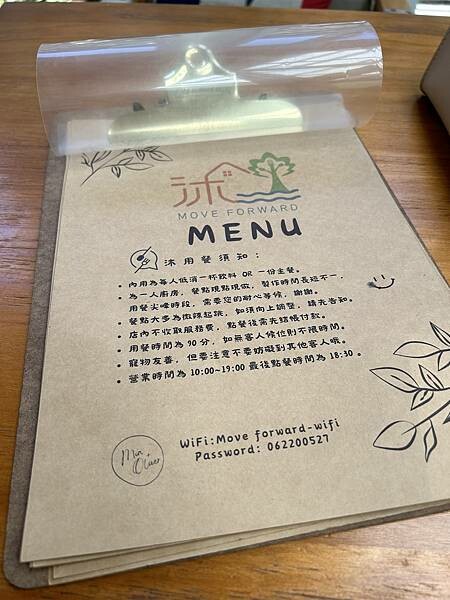 沐
MOVE FORWARD
MENU
沐用餐須知：
• 內用為每人低消一杯飲料 OR 一份主餐。
• 為一人廚房，餐點現點現做，製作時間長短不一，
用餐尖峰時段，需要您的耐心等候，謝謝。
• 餐點大多為微辣起跳，如須向上調整，請先告知。
• 店內不收取服務費，點餐後需先結帳付款。
• 用餐時間為 90 分，如無客人候位則不限時間。
• 寵物友善，但要注意不要妨礙到其他客人哦。
• 營業時間為 10:00~19:00 最後點餐時間為 18:30 。
WiFi:Move forward-wifi
Password: 062200527